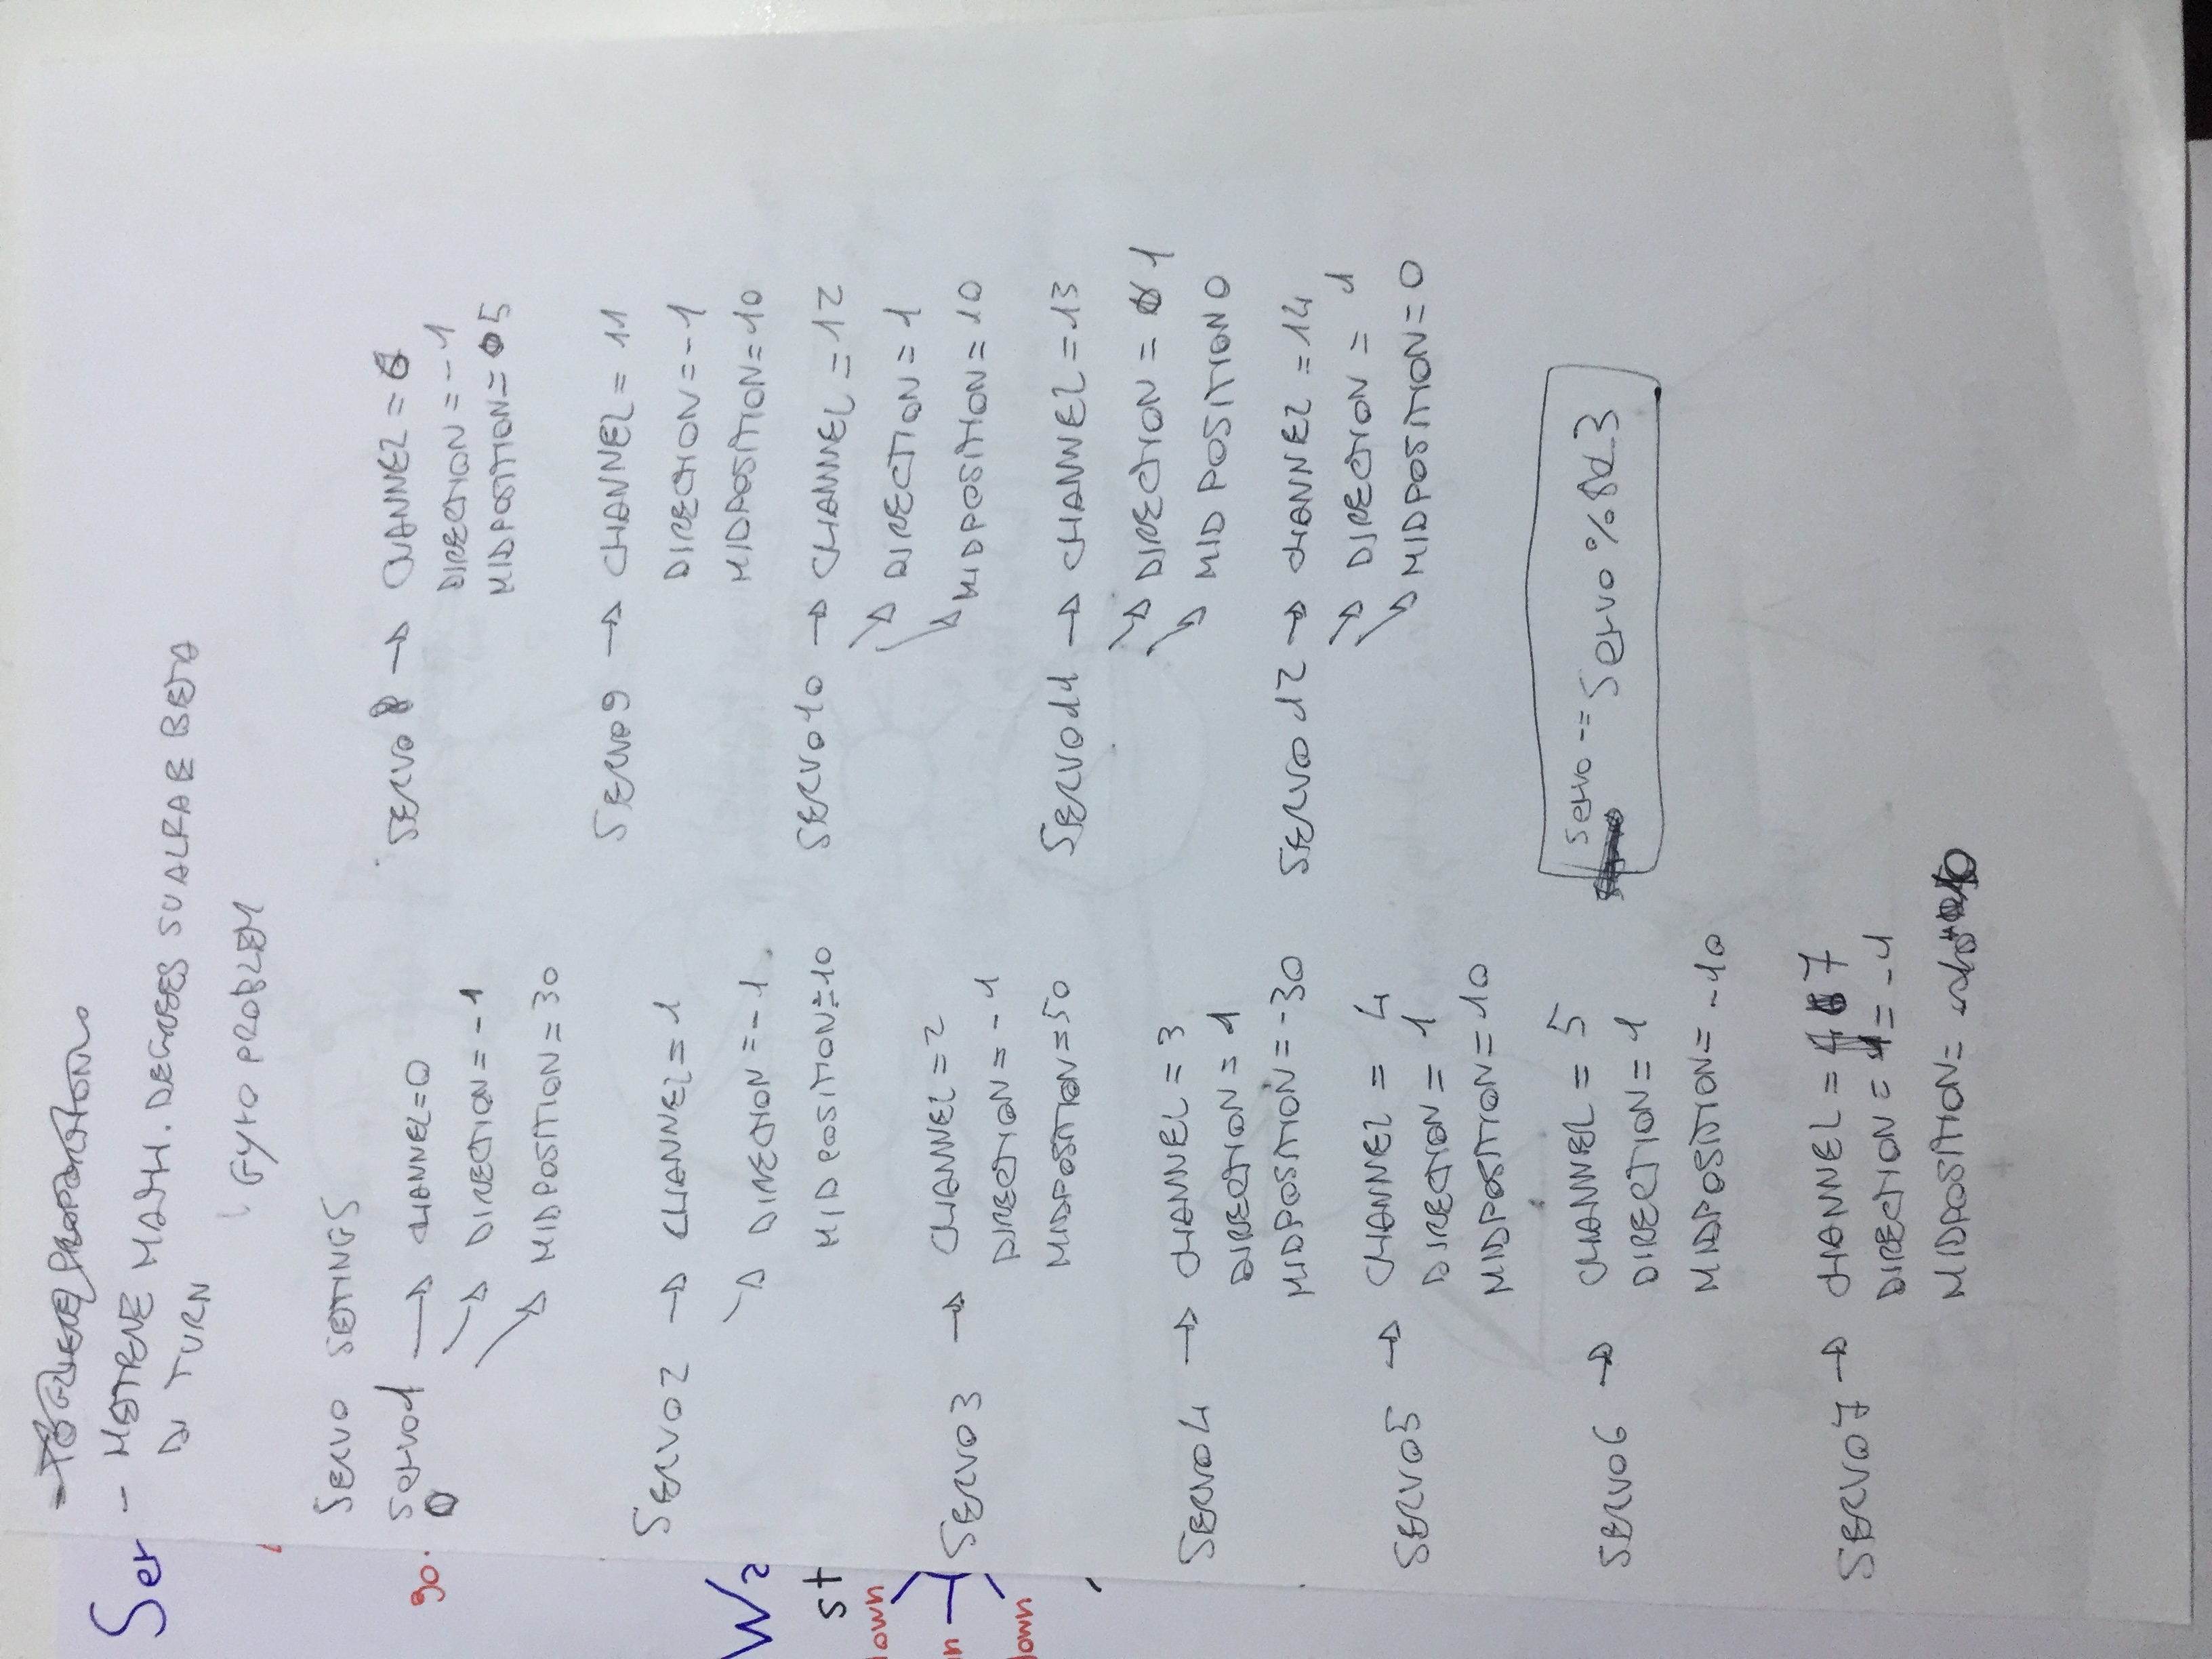 - TOGLIERE PROPORTION
- METTERE MATH. DEGREES SU ALFA E BETA
DI TURN
GYRO PROBLEM
SERVO SETINGS
Servo1 CHANNEL=0
0
DIRECTION = -1
MIDPOSITION = 30
SERVO2 → CHANNEL = 1
DIRECTION = -1
MIDPOSITION = 10
SERVO3 → CHANNEL = 2
DIRECTION = -1
MIDPOSITION = 50
SERVO4 → CHANNEL = 3
DIRECTION = 1
MIDPOSITION = -30
SERVO5 → CHANNEL = 4
DIRECTION = 1
MIDPOSITION = 10
SERVO6 → CHANNEL = 5
DIRECTION = 1
MIDPOSITION = -10
SERVO7 → CHANNEL = 7
DIRECTION = -1
MIDPOSITION =
SERVO8 → CHANNEL =
DIRECTION = -1
MIDPOSITION = 5
SERVO9 → CHANNEL = 11
DIRECTION = -1
MIDPOSITION = 10
SERVO10 → CHANNEL = 12
DIRECTION = 1
MIDPOSITION = 10
SERVO11 → CHANNEL = 13
DIRECTION = 1
MID POSITION 0
SERVO12 → CHANNEL = 14
DIRECTION = 1
MIDPOSITION = 0
servo -= Servo %
Ser
90.
Wa
st
down
n
down